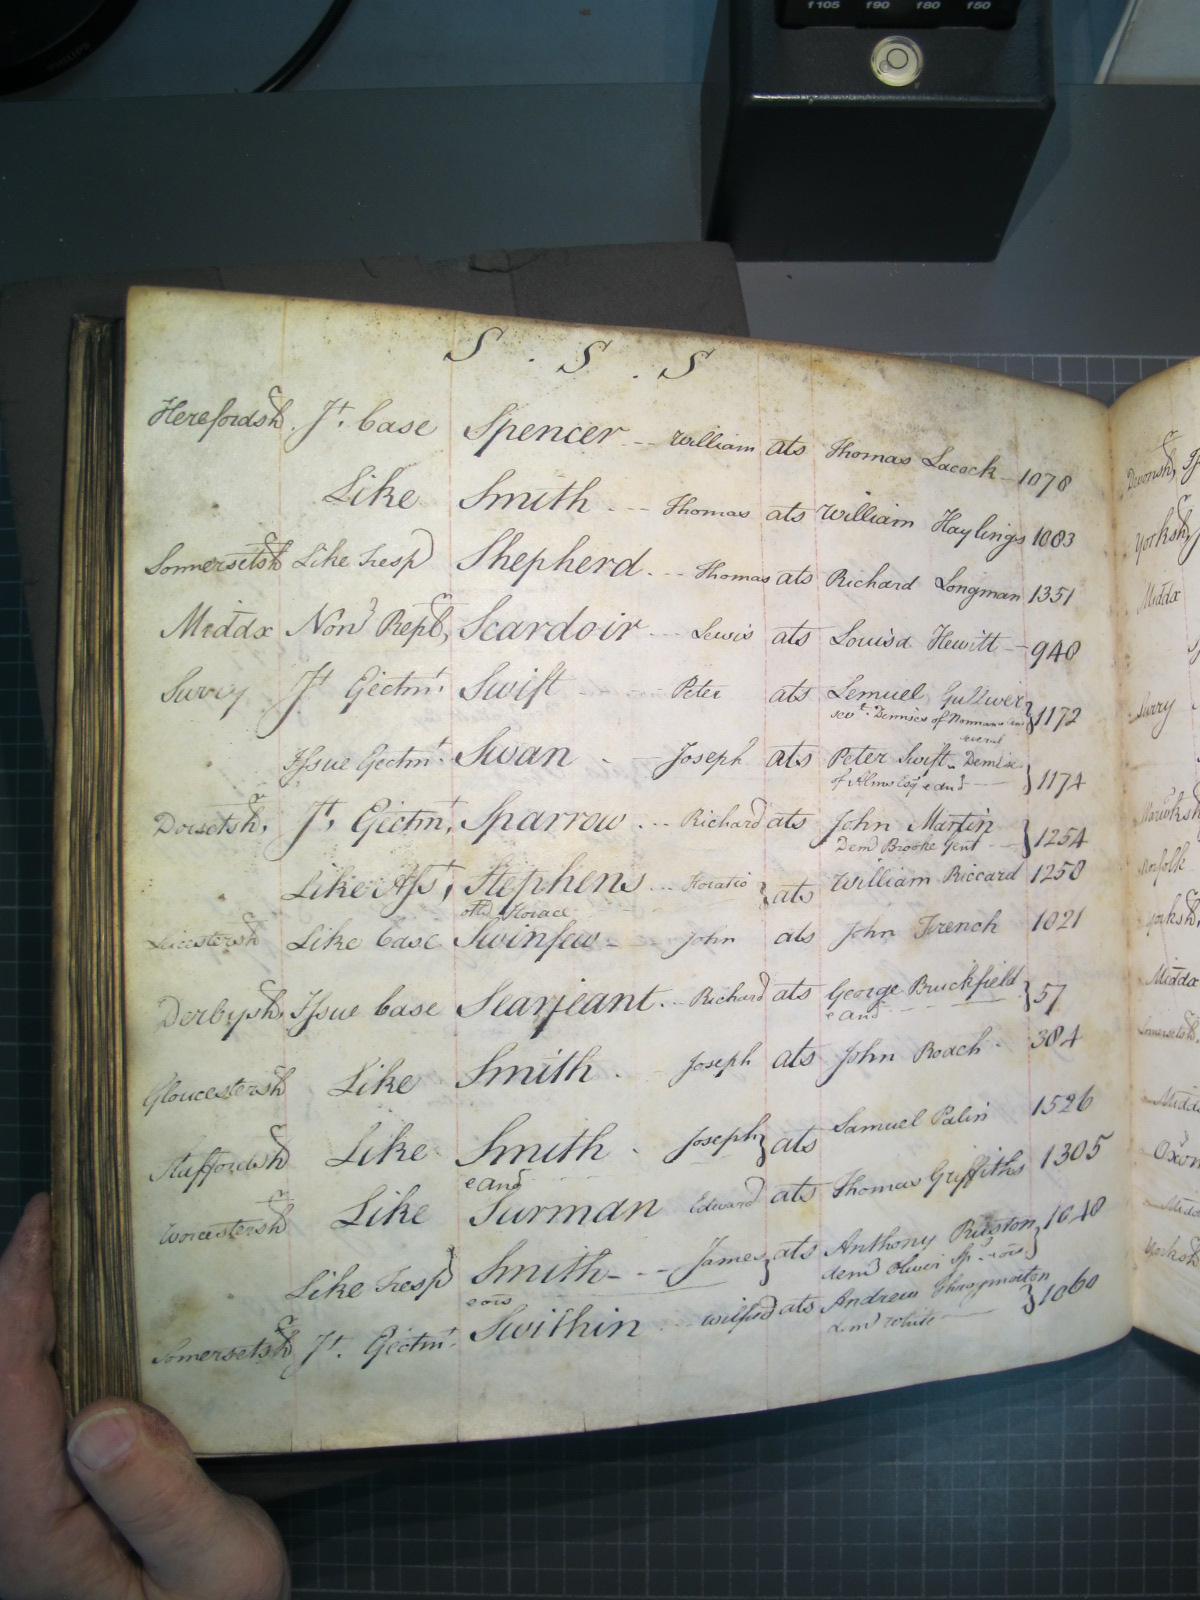 f105 f90 f80 f50
PHILIPS
S . S . S
Herefordsh. Jt. Case Spencer -- William ats Thomas Lacock - 1078
Like Smith --- Thomas ats William Haylings 1083
Sommersetsh Like Tresp Shepherd --- Thomas ats Richard Longman 1351
Middx Non Repl, Scardoir --- Lewis ats Louisa Hewitt -- 940
Surry Jt Eject'mt Swift - Peter ats Lemuel Gulliver } 1172
sevl. Demises of
several
Issue Eject'mt Swan - Joseph ats Peter Swift - Demise } 1174
of Alms Esqr & an
Dorsetsh, Jt, Eject'mt, Sparrow --- Richard ats John Martin } 1254
Demd Brooke Gent
Like Asst, Stephens --- Horatio } ats William Riccard 1258
othd. Horace
Leicestersh Like Case Swinfew - John ats John French 1021
Derbysh, Issue Case Searjeant --- Richard ats George Bruckfield } 57
& and
Gloucestersh Like Smith - Joseph ats John Roach - 384
Staffordsh Like Smith - Joseph } ats Samuel Palin 1526
& and
Worcestersh Like Surman Edward ats Thomas Griffiths 1305
Like Tresp Smith - -- James } ats Anthony Ruston } 1648
& ors
demd Oliver
Somersetsh Jt. Eject'mt. Swithin --- Wilfred ats Andrew Throgmorton } 1060
demd White
Devonsh,
Yorksh,
Middx
Surry
Warwksh
Norfolk
Yorksh,
Middx
Somersetsh,
Midd
Oxon
Midd
Yorksh